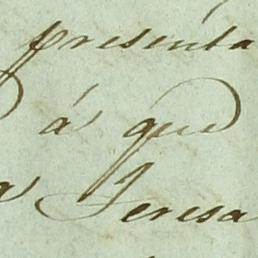 presenta
á que
Teresa